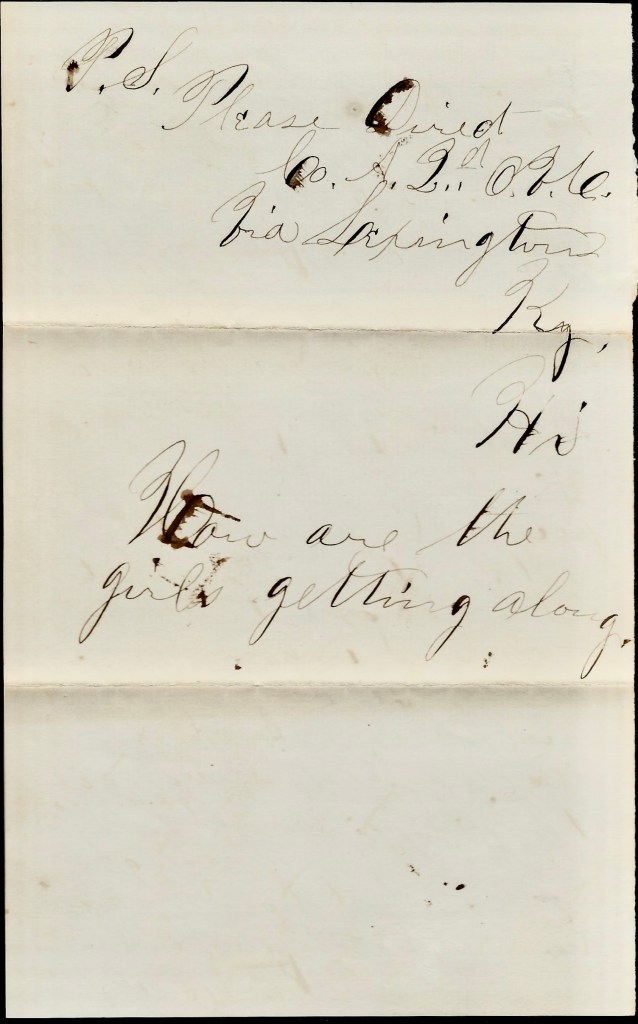 P.S.
Please Direct
Co. A. 2nd O.V.C.
Via Lexington
Ky,
How are the
girls getting along.